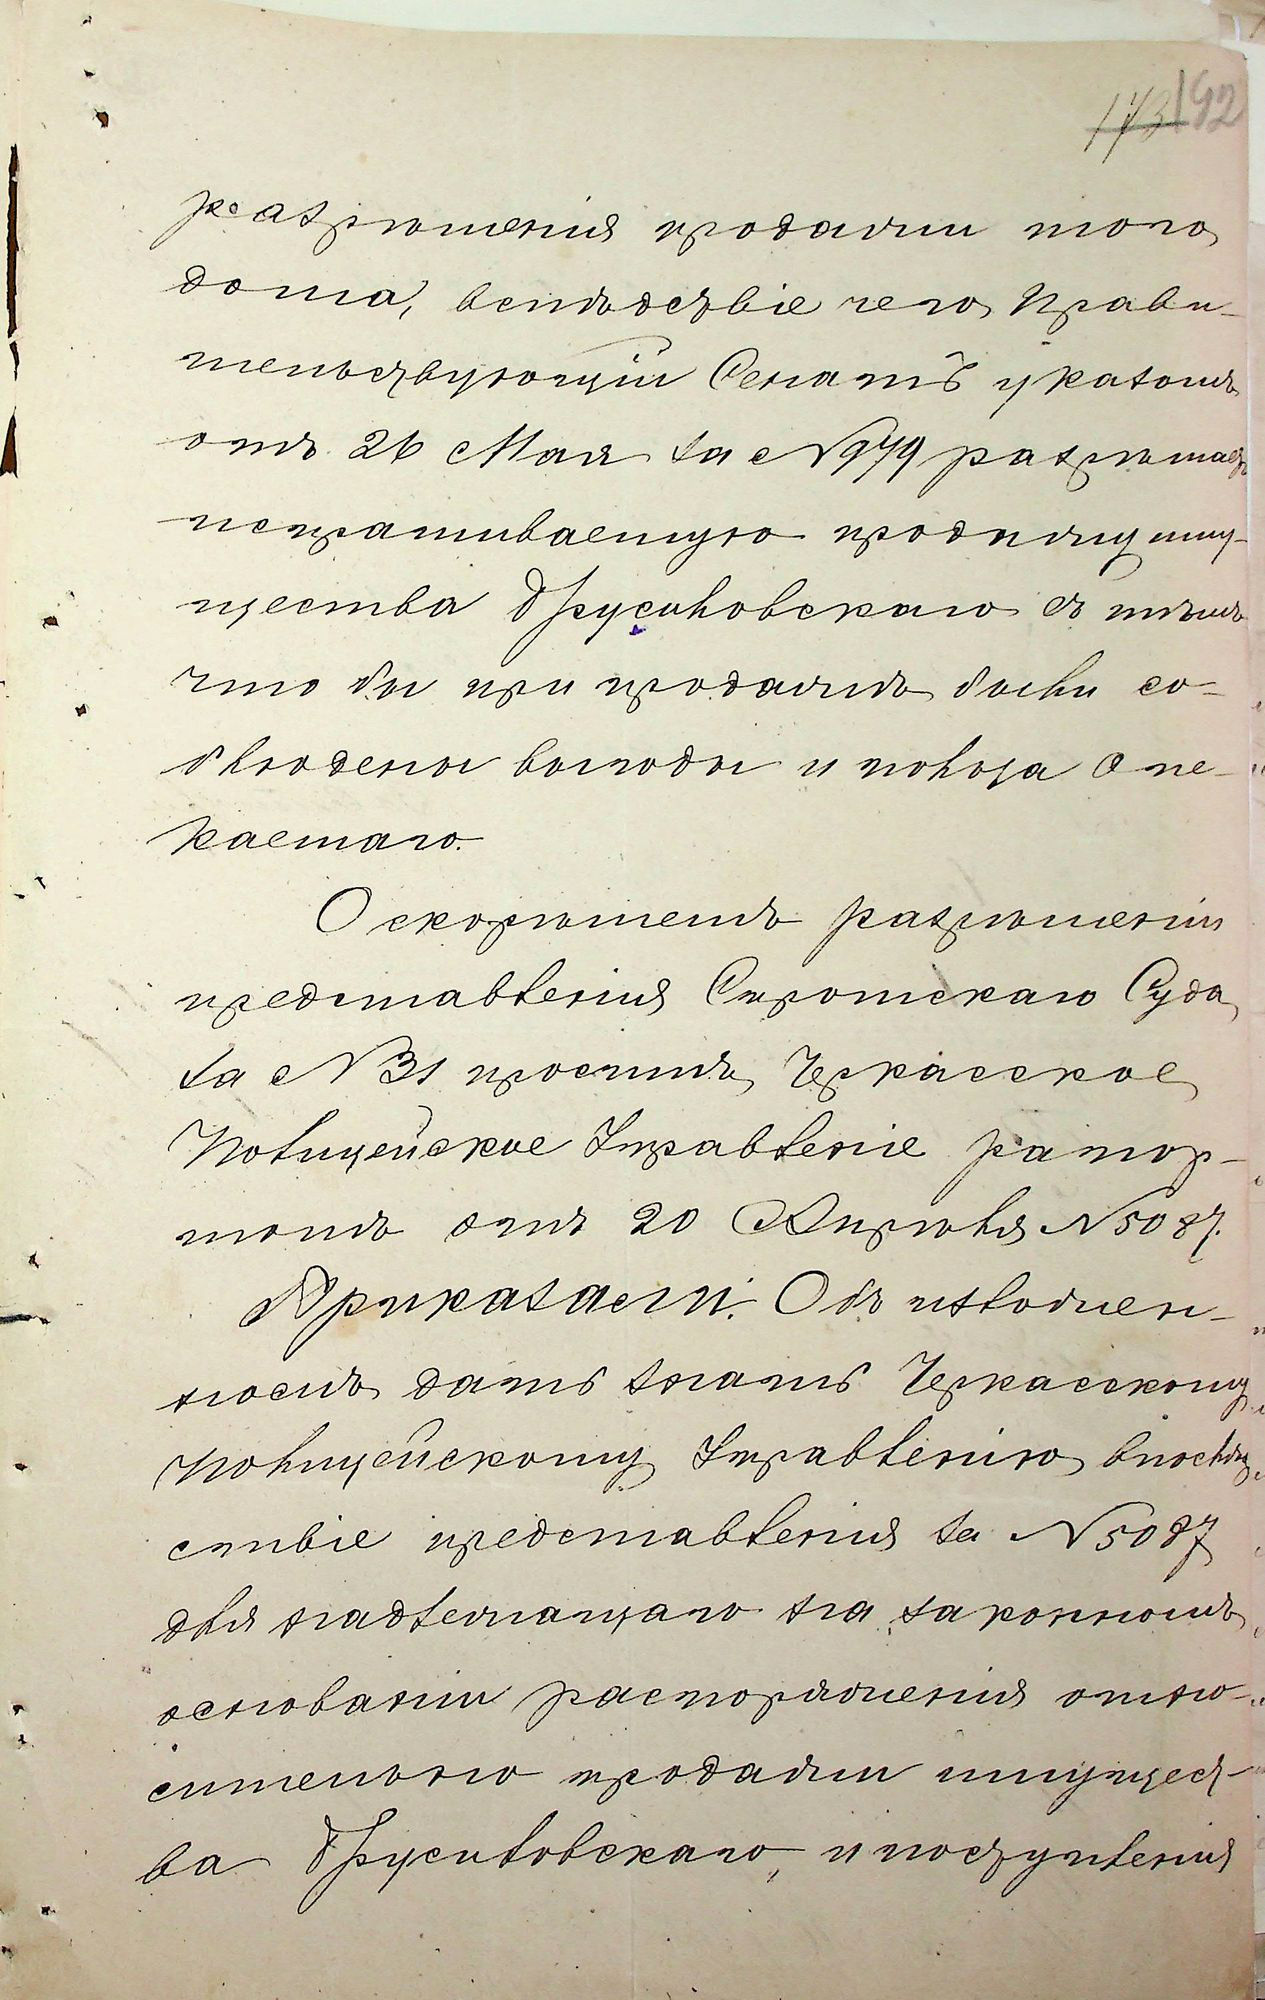 173 192
разрѣшенія продажи того
дома, вслѣдствіе чего Прави-
тельствующій Сенатъ указомъ
отъ 26 Мая за № 979 разрѣшаетъ
испрашиваемую продажу иму-
щества Брусиловскаго съ тѣмъ
что бы при продажѣ были со-
блюдены выгоды и польза Опе-
каемаго.
О скорѣйшемъ разрѣшеніи
представленія Сиротскаго Суда
за № 31 проситъ Черкасское
Полицейское Управленіе рапор-
томъ отъ 20 Апрѣля № 5087.
Приказали: Объ изложен-
номъ дать знать Черкасскому
Полицейскому Управленію впослѣд
ствіе представленія за № 5087
для надлежащаго на законномъ
основаніи распоряженія отно-
сительно продажи имущест-
ва Брусиловскаго, и поступленія